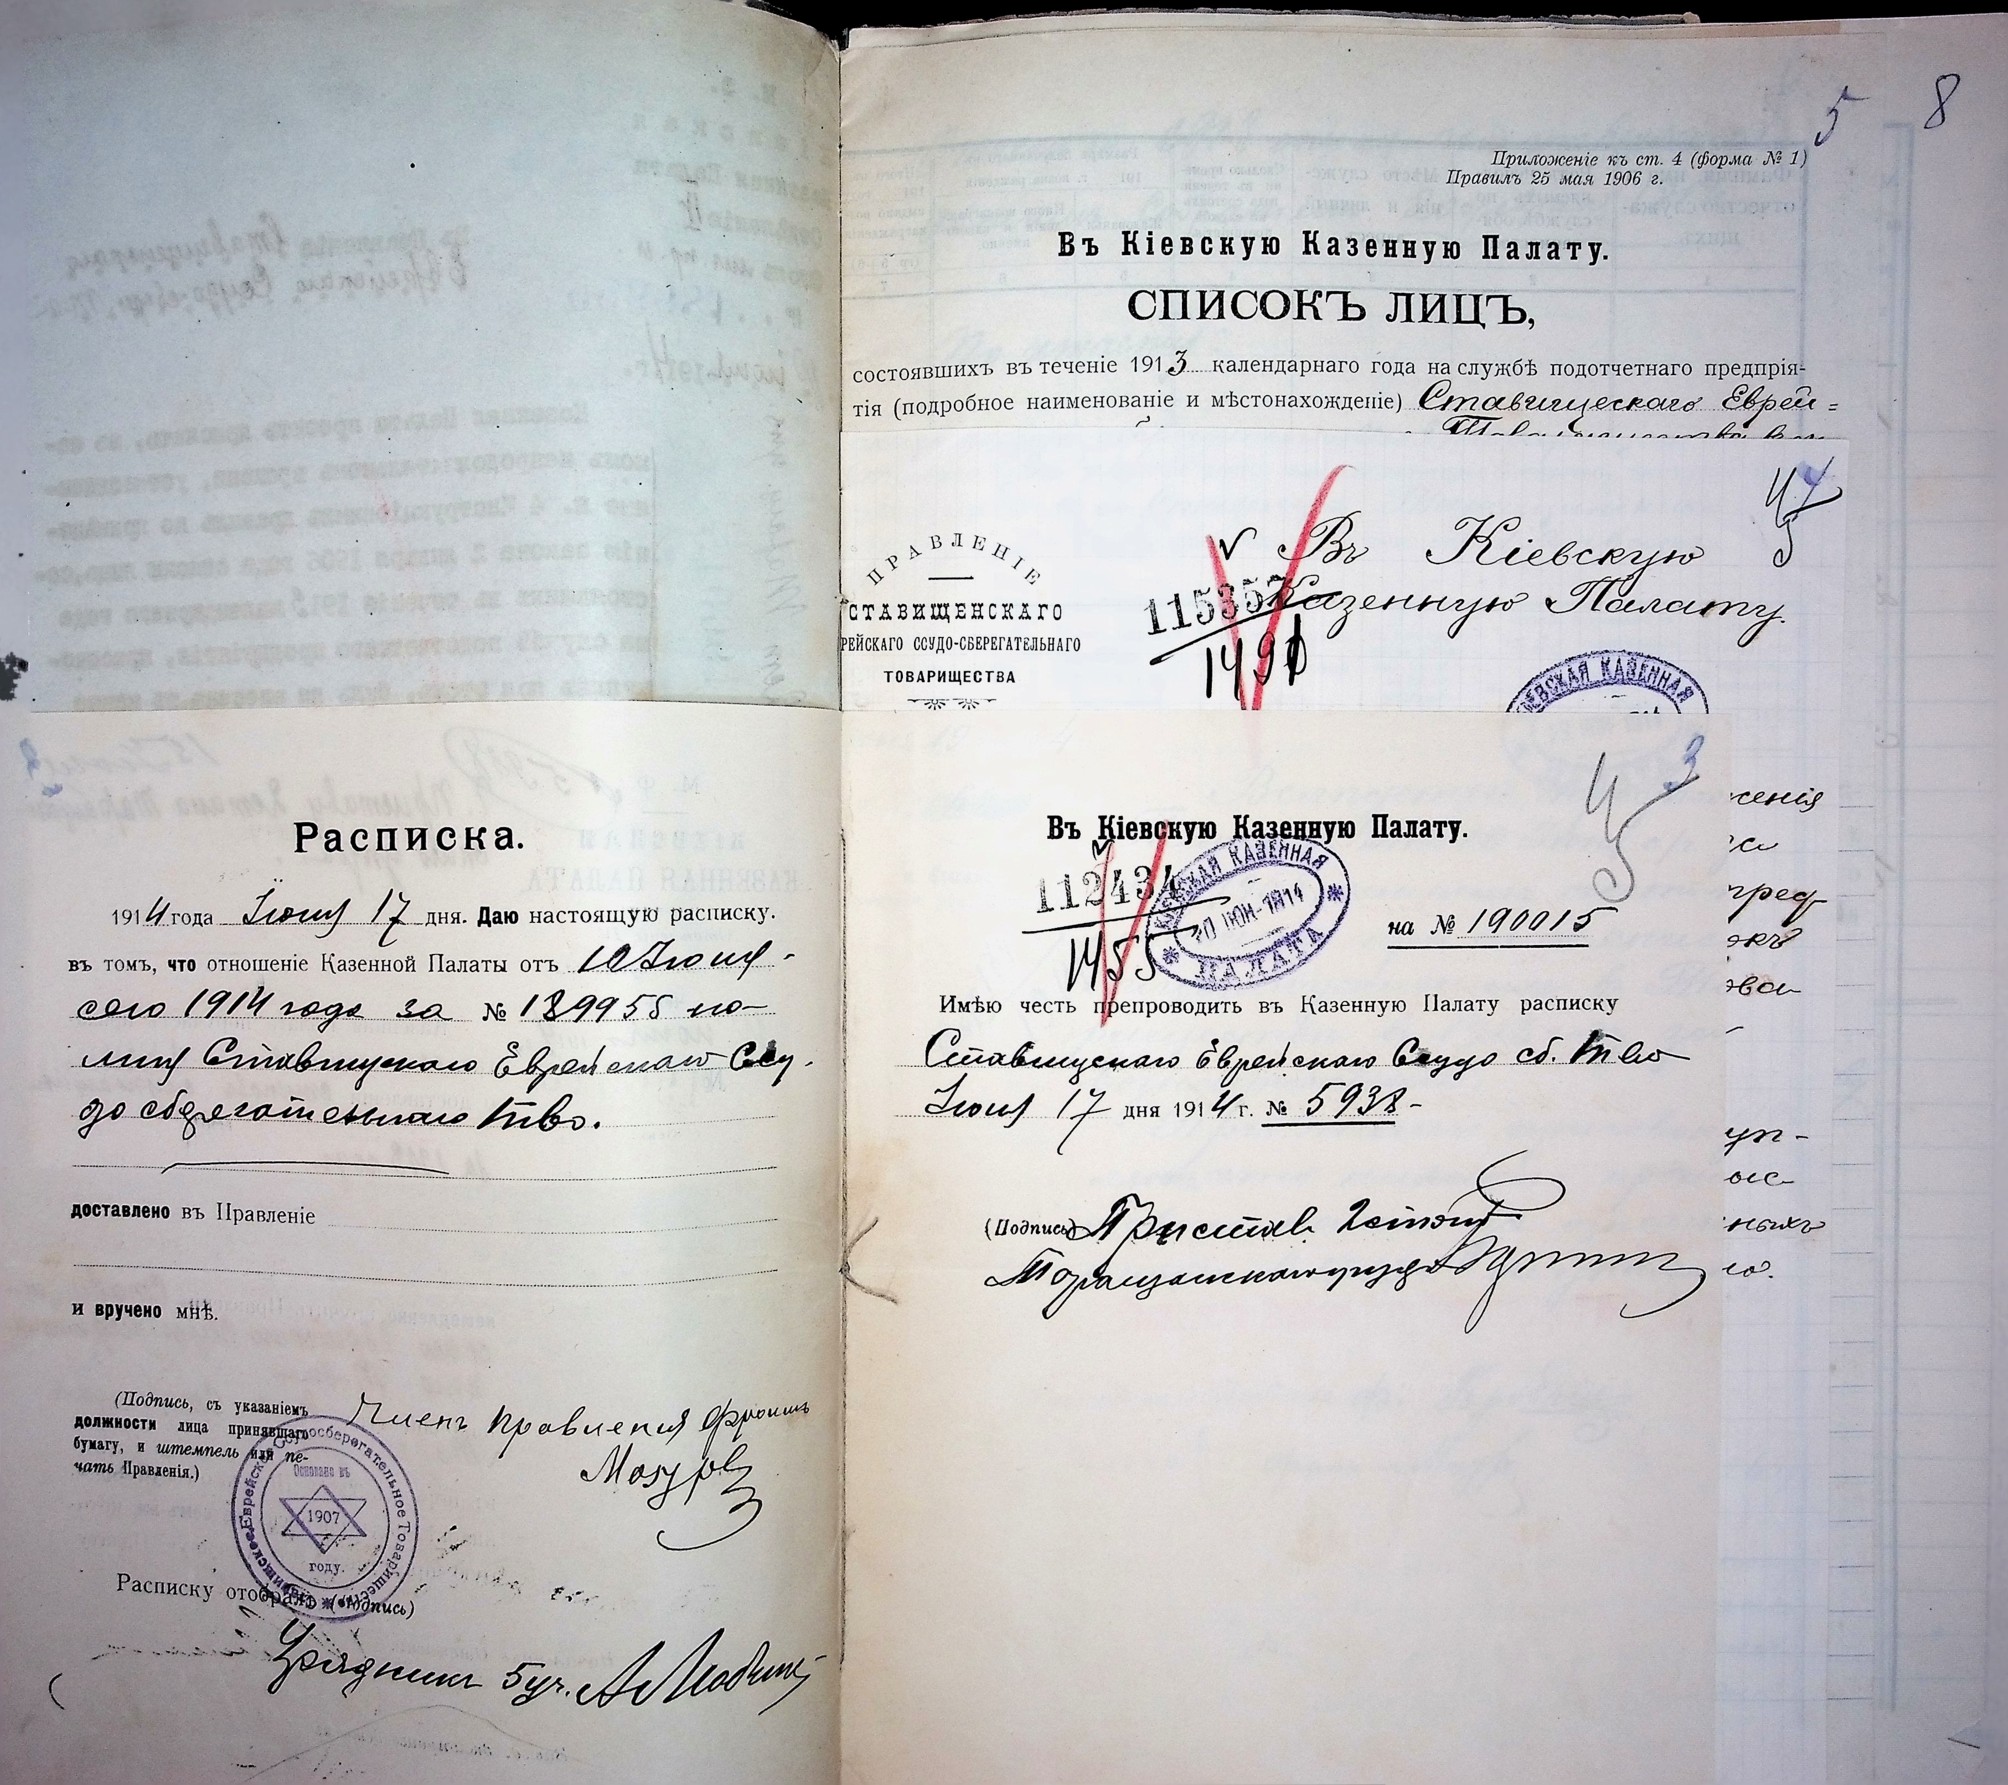 5 8
Приложеніе къ ст. 4 (форма № 1)
Правилъ 25 мая 1906 г.
Въ Кіевскую Казенную Палату.
СПИСОКЪ ЛИЦЪ,
состоявшихъ въ теченіе 1913 календарнаго года на службѣ подотчетнаго предпрія-
тія (подробное наименованіе и мѣстонахожденіе) Ставищескаго Еврей=
ПРАВЛЕНІЕ
СТАВИЩЕНСКАГО
РЕЙСКАГО ССУДО-СБЕРЕГАТЕЛЬНАГО
ТОВАРИЩЕСТВА
4
Въ Кіевскую
Казенную Палату.
115357
1491
КІЕВСКАЯ КАЗЕННАЯ
3
Въ Кіевскую Казенную Палату.
112434
1455
КІЕВСКАЯ КАЗЕННАЯ ПАЛАТА
20 ІЮН. 1914
на № 190015
Имѣю честь препроводить въ Казенную Палату расписку
Ставищскаго Еврейскаго Ссудо сб. Т-во
Іюня 17 дня 1914 г. № 5938 -
(Подпись) Приставъ 2 стана
Таращанскаго уѣзда
Расписка.
1914 года Іюня 17 дня. Даю настоящую расписку.
въ томъ, что отношеніе Казенной Палаты отъ 10 Іюня
сего 1914 года за № 189955 по-
лия Ставищскаго Еврейскаго Ссу-
до сберегательнаго Т-во.
доставлено въ Правленіе
и вручено мнѣ.
(Подпись, съ указаніемъ
должности лица принявшаго
бумагу, и штемпель или пе-
чать Правленія.)
Членъ Правленія Фроимъ
Мазуръ
Ставищское Еврейское Ссудосберегательное Товарищество
Основано въ
1907
году.
Расписку отобралъ (подпись)
Урядникъ 5 уч.